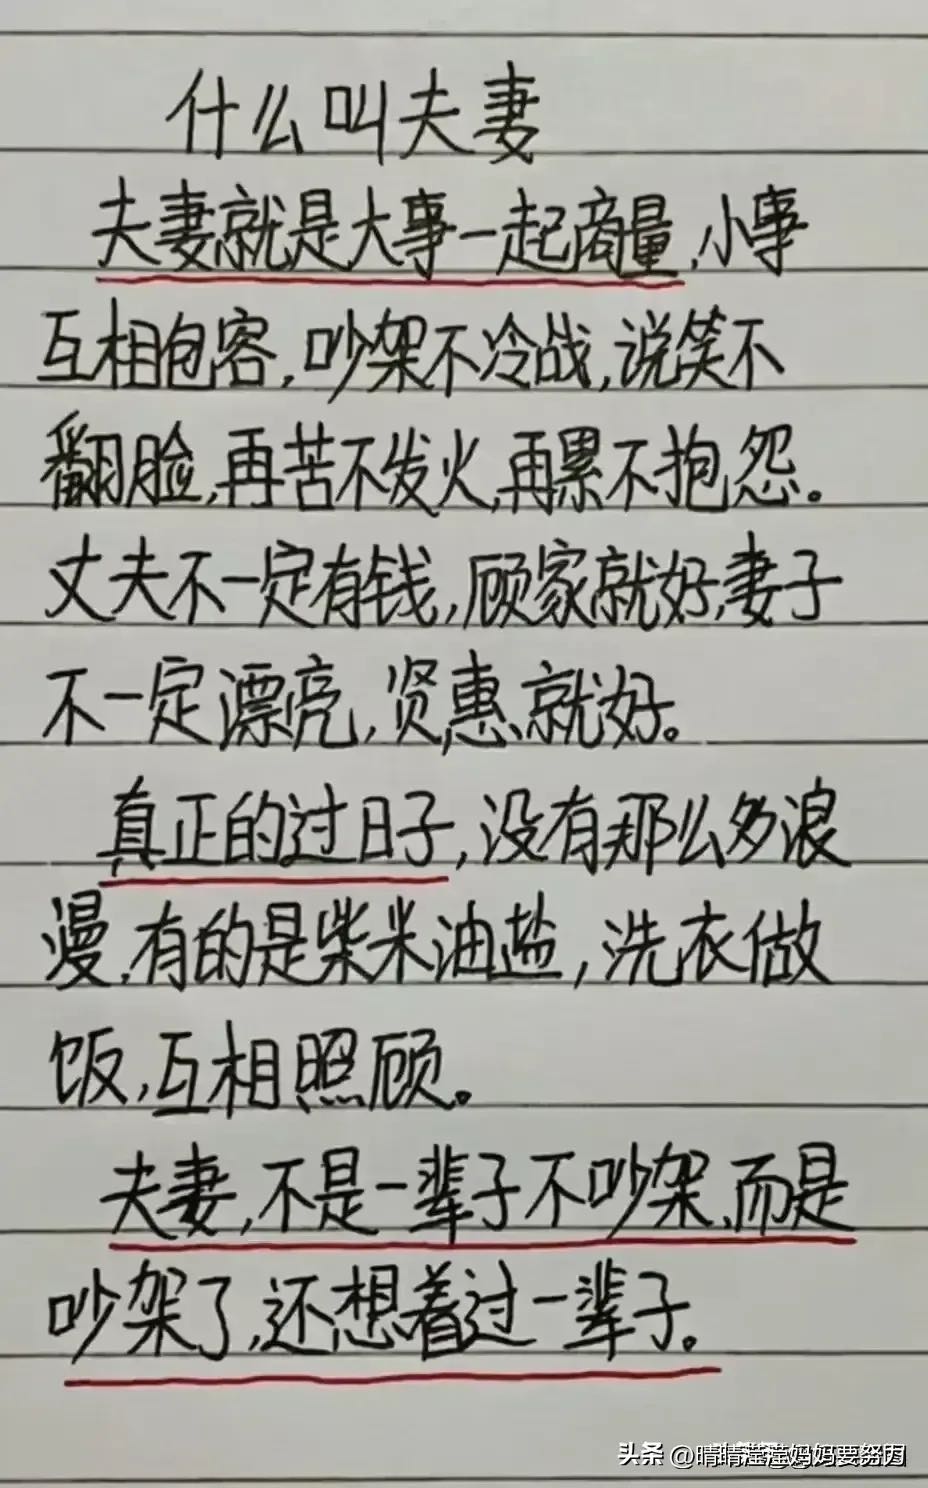 什么叫夫妻
夫妻就是大事一起商量,小事
互相包容,吵架不冷战,说笑不
翻脸,再苦不发火,再累不抱怨。
丈夫不一定有钱,顾家就好,妻子
不一定漂亮,贤惠就好。
真正的过日子,没有那么多浪
漫,有的是柴米油盐,洗衣做
饭,互相照顾。
夫妻,不是一辈子不吵架,而是
吵架了,还想着过一辈子。
头条 @晴晴滢滢妈妈要努力